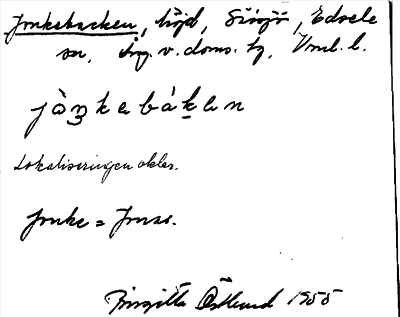 Jonkebacken, höjd, Sörsjö, Edsele
sn, Ång. v. doms. tg, Vnl. l.
jò̀ŋkebáken
Lokaliseringen obles.
Jonke = Jonas.
Birgitta Östlund 1955